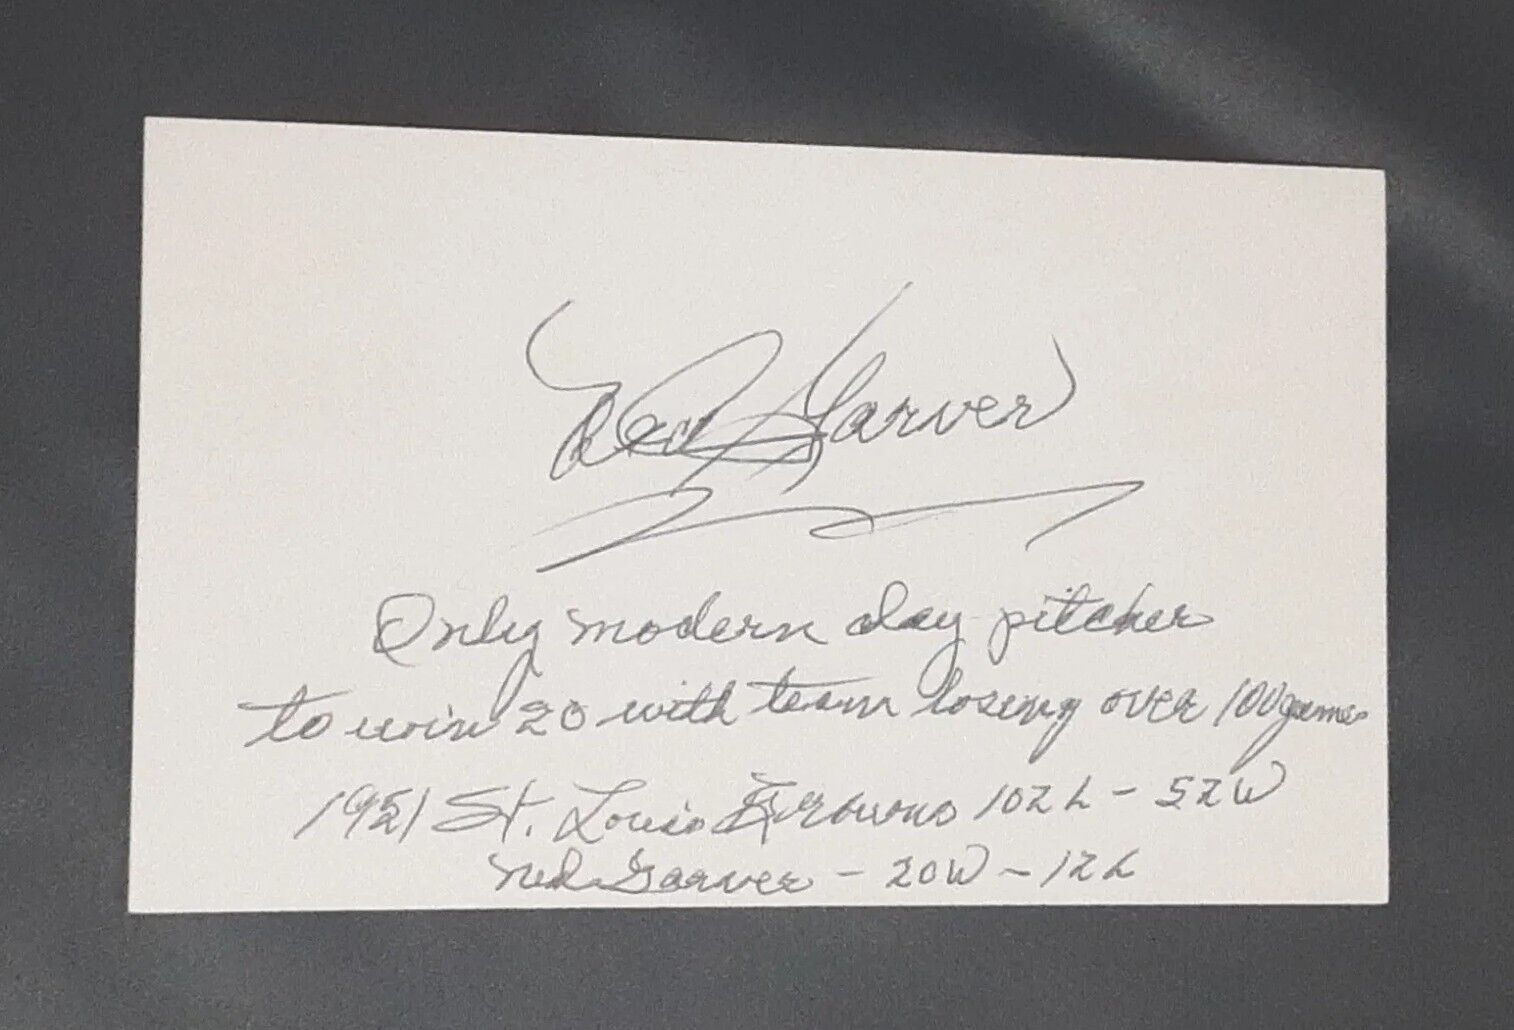 Ned Garver
Only modern day pitcher
to win 20 with team losing over 100 games
1951 St. Louis Browns 102L - 52W
Ned Garver - 20W - 12L